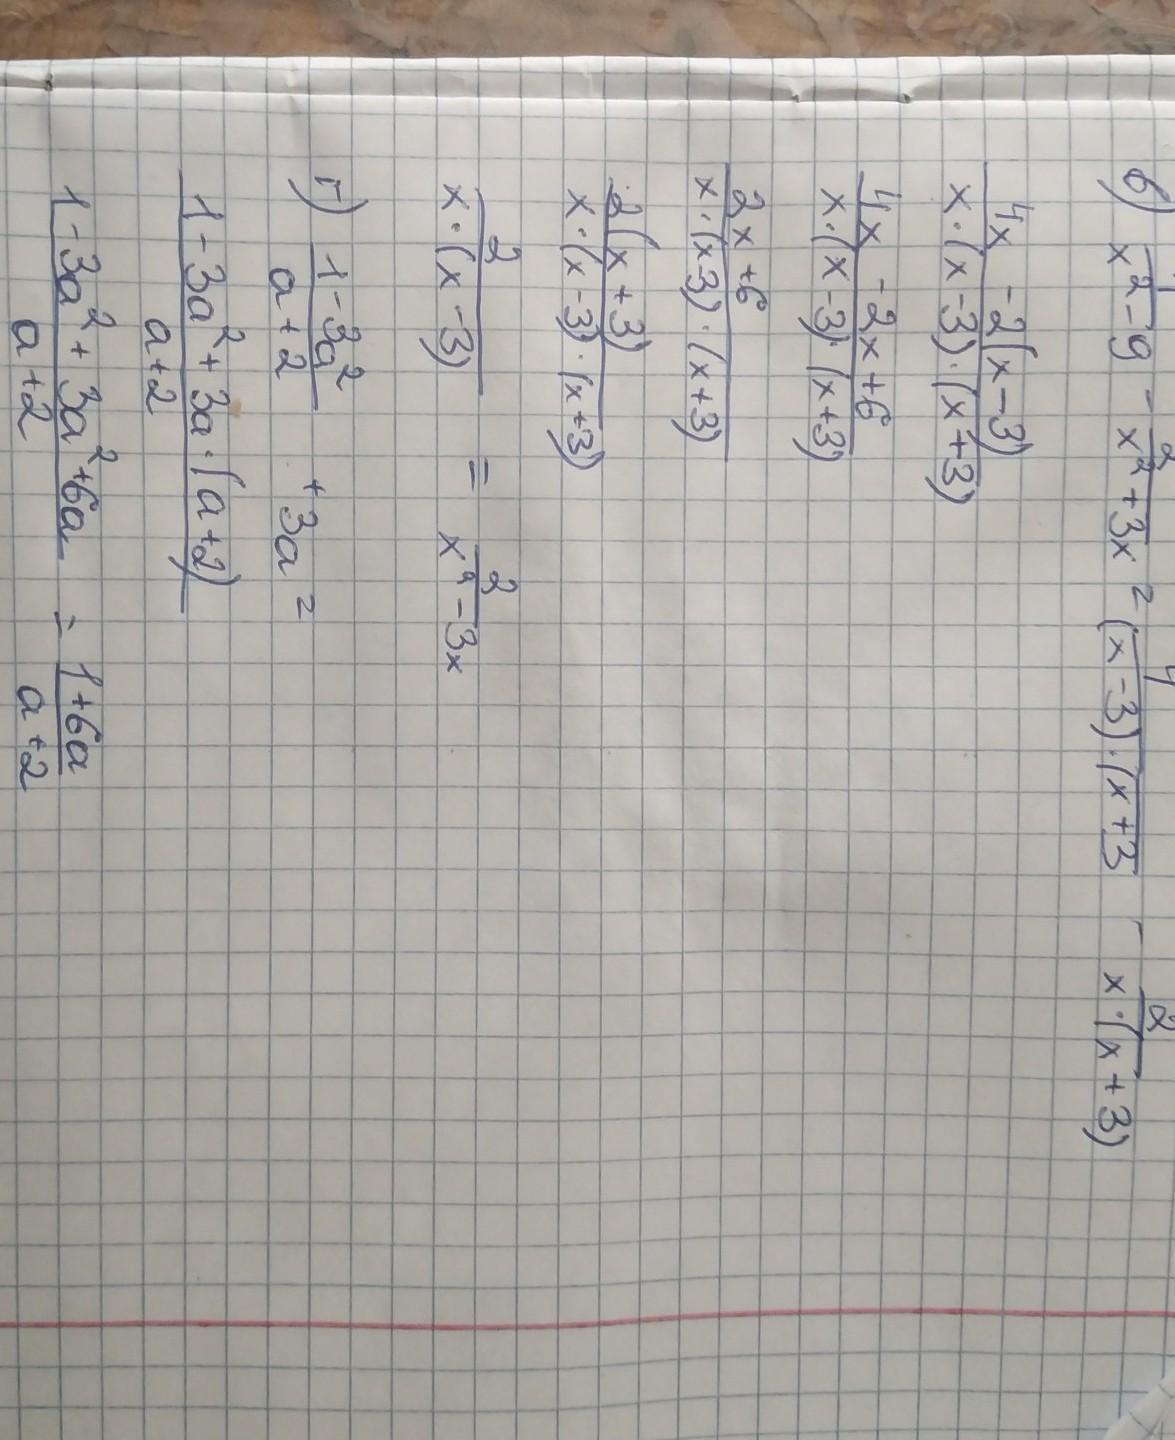 в) 4/(x²-9) - 2/(x²+3x) = 4/((x-3)·(x+3) - 2/(x·(x+3))
(4x-2(x-3))/(x·(x-3)·(x+3))
(4x-2x+6)/(x·(x-3)·(x+3))
(2x+6)/(x·(x-3)·(x+3))
2(x+3)/(x·(x-3)·(x+3))
2/(x·(x-3)) = 2/(x²-3x)
г) (1-3a²)/(a+2) + 3a =
(1-3a²+3a·(a+2))/(a+2)
(1-3a²+3a²+6a)/(a+2) = (1+6a)/(a+2)